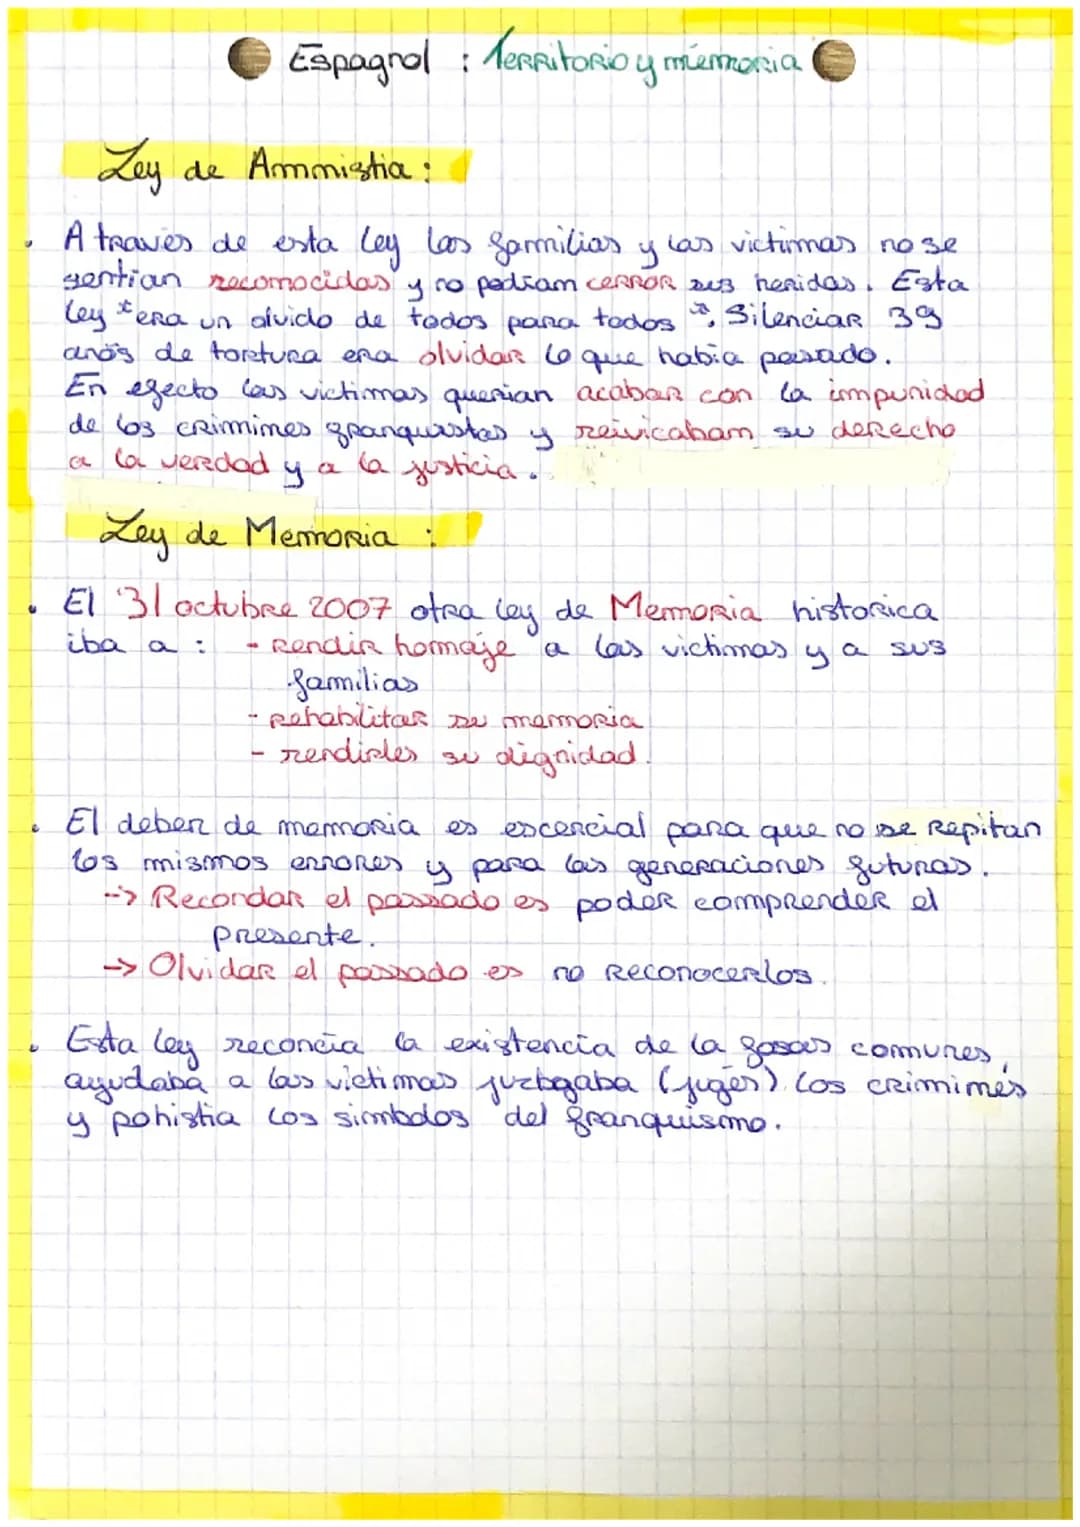 Espagnol : Territorio y memoria
Ley de Ammistia :
A través de esta ley las familias y las victimas no se
sentian reconocidas y no podiam cerrar sus heridas. Esta
ley "era un olvido de todos para todos". Silenciar 39
anõs de tortura era olvidar lo que habia pasado.
En efecto las victimas querian acabar con la impunidad
de los crimimes franquistas y reivicabam su derecho
a la verdad y a la justicia.
Ley de Memoria :
El 31 octubre 2007 otra ley de Memoria historica
iba a : - Rendir homaje a las victimas y a sus
familias
- Rehabilitar su memoria
- rendirles su dignidad.
El deber de memoria es escencial para que no se Repitan
los mismos errores y para las generaciones futuras.
--> Recordar el passado es poder comprender el
presente.
-> Olvidar el passado es no Reconocerlos.
Esta ley reconcía la existencia de la fosas comunes,
ayudaba a las victimas juzbgaba (juger) los crimimés
y pohistia los simbolos del franquismo.